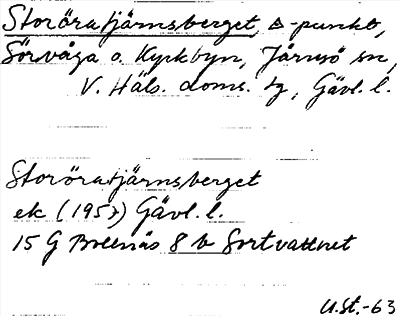 Storöratjärnsberget, △-punkt,
Sörvåga o. Kyrkbyn, Järvsö sn,
V. Häls. doms. tg, Gävl. l.
Storöratjärnsberget
ek (1957) Gävl. l.
15 G Bollnäs 8 b Sortvattnet
U.St.-63